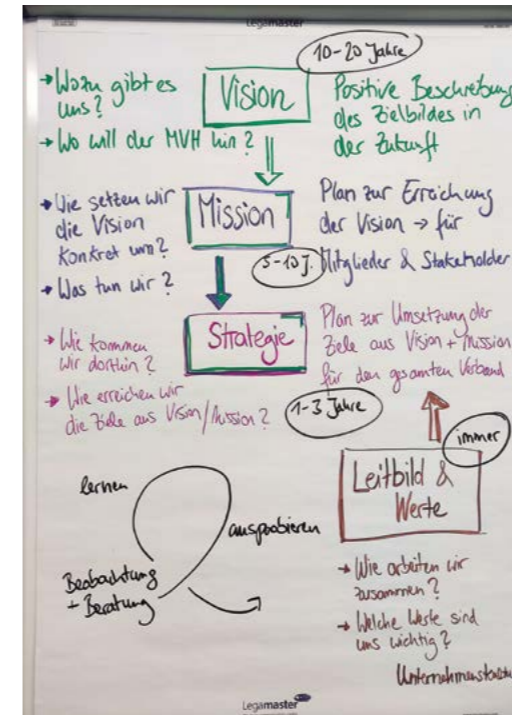 Legamaster
10-20 Jahre
Vision
→ Wozu gibt es
uns?
→ Wo will der MVH hin?
Positive Beschreibung
des Zielbildes in
der Zukunft
Mission
→ Wie setzen wir
die Vision
konkret um?
→ Was tun wir?
Plan zur Erreichung
der Vision → für
Mitglieder & Stakeholder
5-10 J.
Strategie
→ Wie kommen
wir dorthin?
→ Wie erreichen wir
die Ziele aus Vision/Mission?
Plan zur Umsetzung der
Ziele aus Vision + Mission
für den gesamten Verband
1-3 Jahre
immer
Leitbild &
Werte
→ Wie arbeiten wir
zusammen?
→ Welche Werte sind
uns wichtig?
lernen
ausprobieren
Beobachtung
+ Beratung
Legamaster